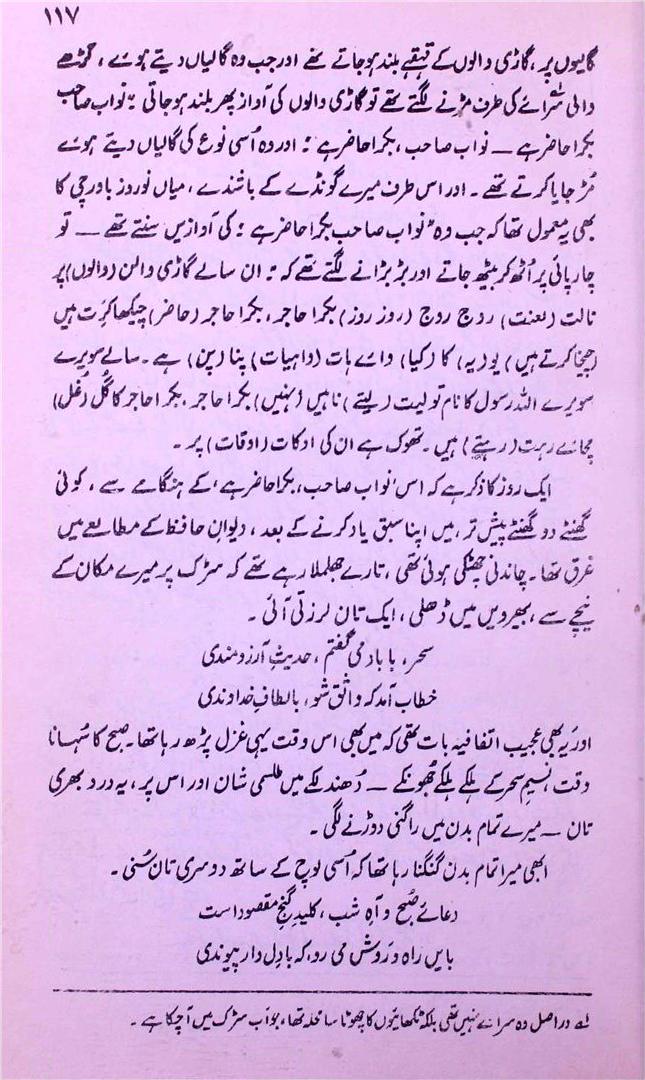 ۱۱۷
گالیوں پر، گاڑی والوں کے قہقہے بلند ہو جاتے تھے اور جب وہ گالیاں دیتے ہوئے، گڑھے
والی سرائے کی طرف مڑنے لگتے تھے تو گاڑی والوں کی آواز پھر بلند ہو جاتی "نواب صاحب
بکرا حاضر ہے — نواب صاحب، بکرا حاضر ہے" اور وہ اُسی نوع کی گالیاں دیتے ہوئے
مُڑ جایا کرتے تھے۔ اور اس طرف میرے گونڈے کے باشندے، میاں نوروز باورچی کا
بھی یہ معمول تھا کہ جب وہ "نواب صاحب بکرا حاضر ہے" کی آوازیں سنتے تھے — تو
چارپائی پر اُٹھ کر بیٹھ جاتے اور بڑبڑانے لگتے تھے کہ "ان سالے گاڑی والن (والوں) پر
نالت (لعنت) روج روج (روز روز) بکرا حاجر، بکرا حاجر (حاضر) چیکھا کرت ہیں
(چیخا کرتے ہیں) یو (یہ) کا (کیا) واے ہات (واہیات) پنا (پن) ہے۔ سالے سویرے
سویرے اللہ رسول کا نام تو لیت (لیتے) ناہیں (نہیں) بکرا حاجر، بکرا حاجر کا گُل (غل)
مچائے رہت (رہتے) ہیں۔ تھوک ہے ان کی اوکات (اوقات) پر۔
ایک روز کا ذکر ہے کہ اس 'نواب صاحب، بکرا حاضر ہے' کے ہنگامے سے، کوئی
گھنٹے دو گھنٹے پیش تر، میں اپنا سبق یاد کرنے کے بعد، دیوانِ حافظ کے مطالعے میں
غرق تھا۔ چاندنی چھٹکی ہوئی تھی، تارے جھلملا رہے تھے کہ سڑک پر میرے مکان کے
نیچے سے، بھیرویں میں ڈھلی، ایک تان لرزتی آئی۔
سحر، با باد می گفتم، حدیثِ آرزومندی
خطاب آمد کہ واثق شو، بالطافِ خداوندی
اور یہ بھی عجیب اتفاقیہ بات تھی کہ میں بھی اس وقت یہی غزل پڑھ رہا تھا۔ صبح کا سُہانا
وقت، نسیمِ سحر کے ہلکے ہلکے جُھونکے — دُھندلکے میں طلسمی شان اور اس پر، یہ درد بھری
تان — میرے تمام بدن میں راگنی دوڑنے لگی۔
ابھی میرا تمام بدن گنگنا رہا تھا کہ اُسی لوچ کے ساتھ دوسری تان سُنی۔
دعائے صُبح و آہِ شب، کلیدِ گنجِ مقصود است
بایں راہ و رَوِش می رو، کہ با دِل دار پیوندی
لے دراصل وہ سرائے نہیں تھی بلکہ ٹکھائیوں کا چھوٹا سا محلہ تھا، جو اب سڑک میں آ چکا ہے۔